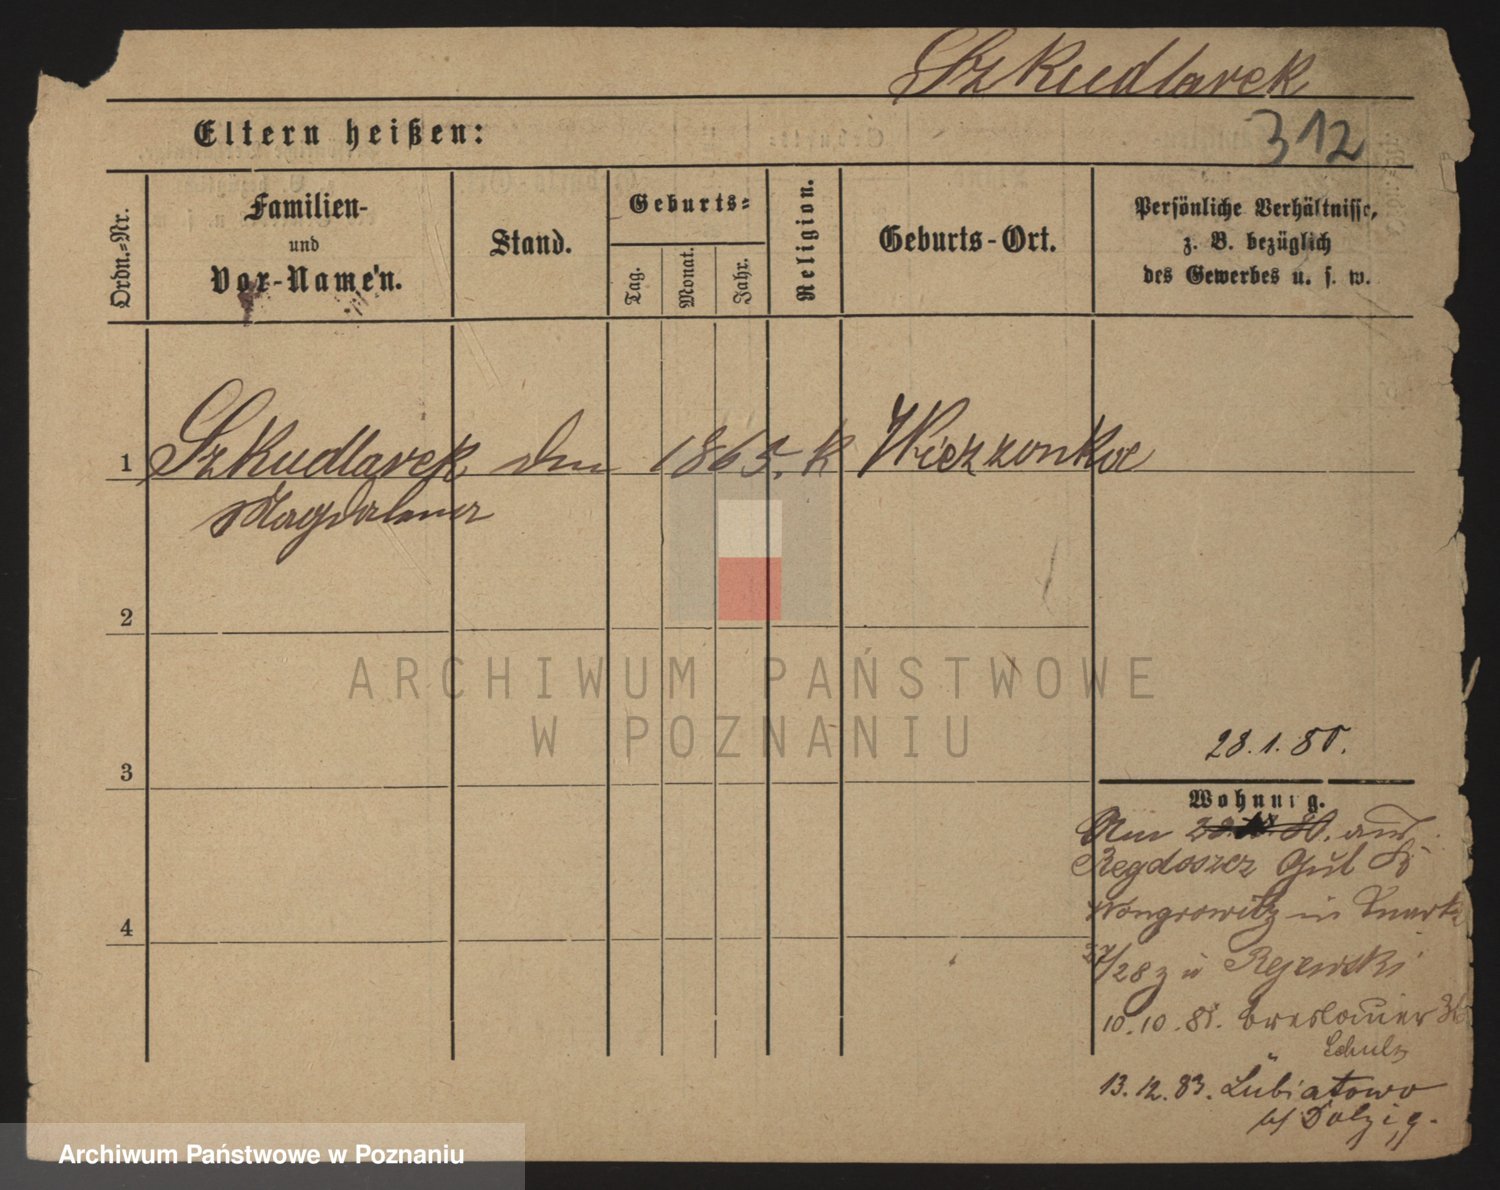 Szkudlarek
312
Eltern heißen:
Ordn.-Nr.
Familien-
und
Vor-Namen.
Stand.
Geburts-
Tag.
Monat.
Jahr.
Religion.
Geburts-Ort.
Persönliche Verhältnisse,
z. B. bezüglich
des Gewerbes u. s. w.
1 Szkudlarek 1865. k
Magdalena
2
3
4
28.1.85.
Wohnung.
Am
Gut
Wongrowitz in
27/28 Rejewski
10.10.81. Breslauer
Schulz
13.12.83. Lubiatowo
b/ Dolzig.
ARCHIWUM PAŃSTWOWE
W POZNANIU
Archiwum Państwowe w Poznaniu